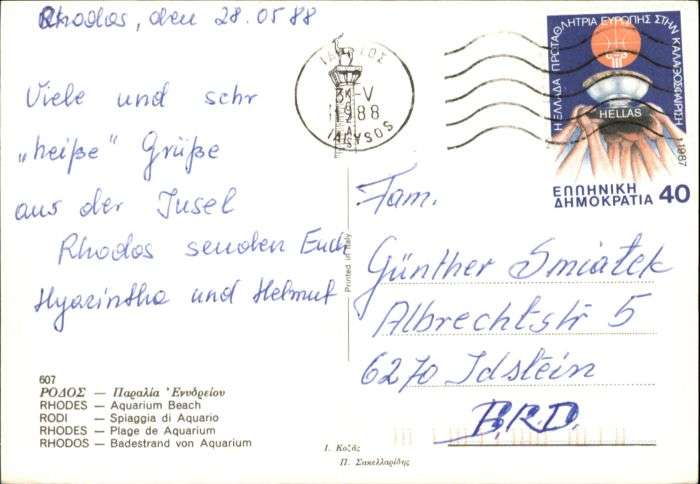 Rhodos, den 28.05 88
Viele und sehr
„heiße" Grüße
aus der Insel
Rhodos senden Euch
Hyazintha und Helmut
607
ΡΟΔΟΣ — Παραλία Ἐνυδρείου
RHODES — Aquarium Beach
RODI — Spiaggia di Aquario
RHODES — Plage de Aquarium
RHODOS — Badestrand von Aquarium
Printed in Italy
Ι. Κοζᾶς
Π. Σακελλαρίδης
ΙΑΛΥΣΟΣ
-V
1988
IALYSOS
Η ΕΛΛΑΔΑ ΠΡΩΤΑΘΛΗΤΡΙΑ ΕΥΡΩΠΗΣ ΣΤΗΝ ΚΑΛΑΘΟΣΦΑΙΡΙΣΗ 1987
HELLAS
ΕΛΛΗΝΙΚΗ
ΔΗΜΟΚΡΑΤΙΑ 40
Fam.
Günther Smiatek
Albrechtstr 5
6270 Idstein
B.R.D.